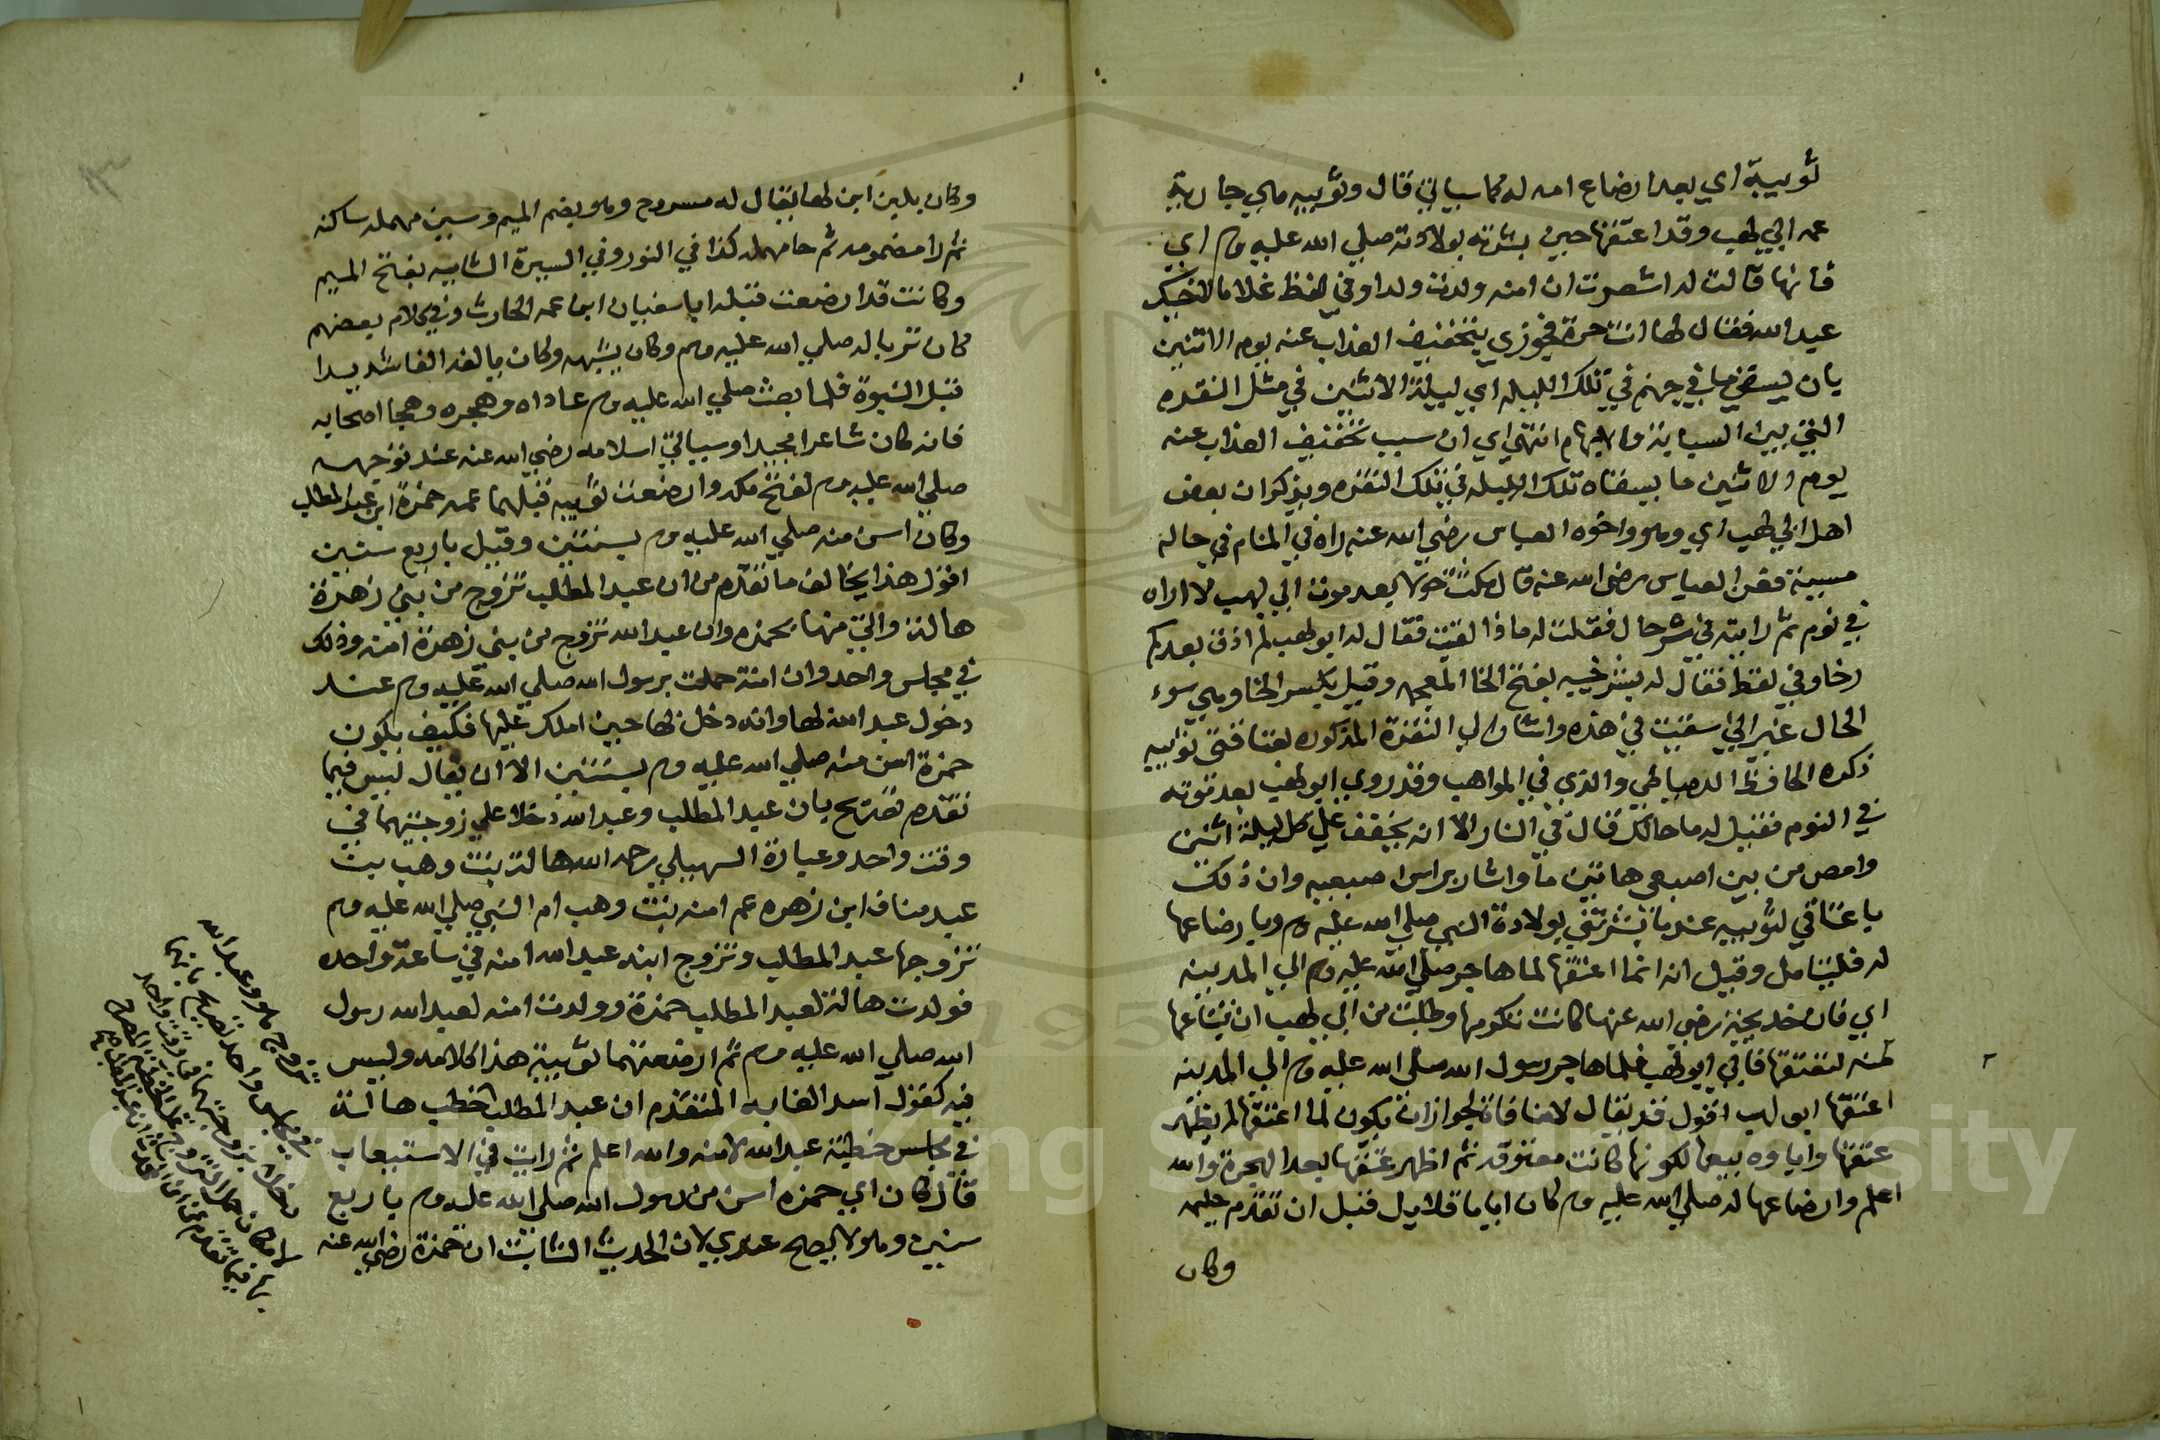 ثويبة اي بعد ارضاع امه له كما سياتي قال وثويبه هي جارية
عمه ابي لهب وقد اعتقها حين بشرته بولادته صلي الله عليه وم اي
فانها قالت له اشعرت ان امنه ولدت ولدا وفي لفظ غلاما لاخيك
عبد الله فقال لها انت حرة فجوزي بتخفيف العذاب عنه يوم الاثنين
بان يسقي ما في جهنم في تلك الليله اي ليلة الاثنين في مثل النقره
التي بين السبابة والابهام انتهي اي ان سبب تخفيف العذاب عنه
يوم الاثنين ما يسقاه تلك الليله في تلك النقره ويذكر ان بعض
اهل ابي لهب اي وهو اخوه العباس رضي الله عنه راه في المنام في حاله
سيئة فعن العباس رضي الله عنه قال مكثت حولا بعد موت ابي لهب لا اراه
في نوم ثم رايته في شر حال فقلت له ماذا لقيت فقال له ابو لهب لم اذق بعدكم
رخا وفي لفظ فقال له بشر خيبه بفتح الخا المعجمه وقيل بكسر الخا وهي سوء
الحال غير اني سقيت في هذه واشار الي النقرة المذكوره بعتاقتي ثويبه
ذكره الحافظ الدمياطي والذي في المواهب وقد روي ابو لهب بعد موته
في النوم فقيل له ما حالك قال في النار الا انه يخفف علي كل ليلة اثنين
وامص من بين اصبعي هاتين ما واشار براس اصبعيه وان ذلك
باعتاقي لثويبه عندما بشرتني بولادة النبي صلي الله عليه وم وبارضاعها
له فليتامل وقيل انه انما اعتقها لما هاجر صلي الله عليه وم الي المدينه
اي فان خديجة رضي الله عنها كانت تكرمها وطلبت من ابي لهب ان تبتاعها
منه لتعتقها فابي ابو لهب فلما هاجر رسول الله صلي الله عليه وم الي المدينه
اعتقها ابو لهب اقول قد يقال لا منافاة لجواز ان يكون لما اعتقها لم يظهر
عتقها واباوه بيعها لكونها كانت معتوقه ثم اظهر عتقها بعد الهجرة والله
اعلم وارضاعها له صلي الله عليه وم كان اياما قلايل قبل ان تقدم حليمه
وكان
وكان بلبن ابن لها يقال له مسروح وهو بضم الميم وسين مهمله ساكنه
ثم را مضمومه ثم حا مهمله كذا في النور وفي السيرة الشاميه بفتح الميم
وكانت قد ارضعت قبله ابا سفيان ابن عمه الحارث وفي كلام بعضهم
كان تربا له صلي الله عليه وم وكان يشبهه وكان يالفه الفا شديدا
قبل النبوة فلما بعث صلي الله عليه وم عاداه وهجره وهجا اصحابه
فانه كان شاعرا مجيدا وسياتي اسلامه رضي الله عنه عند توجهه
صلي الله عليه وم لفتح مكه وارضعت ثويبه قبلهما عمه حمزة ابن عبد المطلب
وكان اسن منه صلي الله عليه وم بسنتين وقيل باربع سنين
اقول هذا يخالف ما تقدم من ان عبد المطلب تزوج من بني زهرة
هالة واتي منها بحمزه وان عبد الله تزوج من بني زهرة امنه وذلك
في مجلس واحد وان امنة حملت برسول الله صلي الله عليه وم عند
دخول عبد الله لها وانه دخل لها حين املك عليها فكيف يكون
حمزة اسن منه صلي الله عليه وم بسنتين الا ان يقال ليس فيما
تقدم تصريح بان عبد المطلب وعبد الله دخلا علي زوجتيهما في
وقت واحد وعبارة السهيلي رحمه الله هالة بنت وهيب بن
عبد مناف ابن زهره عم امنه بنت وهب ام النبي صلي الله عليه وم
تزوجها عبد المطلب وتزوج ابنه عبد الله امنه في ساعة واحده
فولدت هالة لعبد المطلب حمزة وولدت امنه لعبد الله رسول
الله صلي الله عليه وم ثم ارضعتهما ثويبة هذا كلامه وليس
فيه كقول اسد الغابه المتقدم ان عبد المطلب خطب هالة
في مجلس خطبة عبد الله لامنه والله اعلم ثم رايت في الاستيعاب
قال كان اي حمزه اسن من رسول الله صلي الله عليه وم باربع
سنين وهو لا يصح عندي لان الحديث الثابت ان حمزة رضي الله عنه
تزوج هو وعبد الله